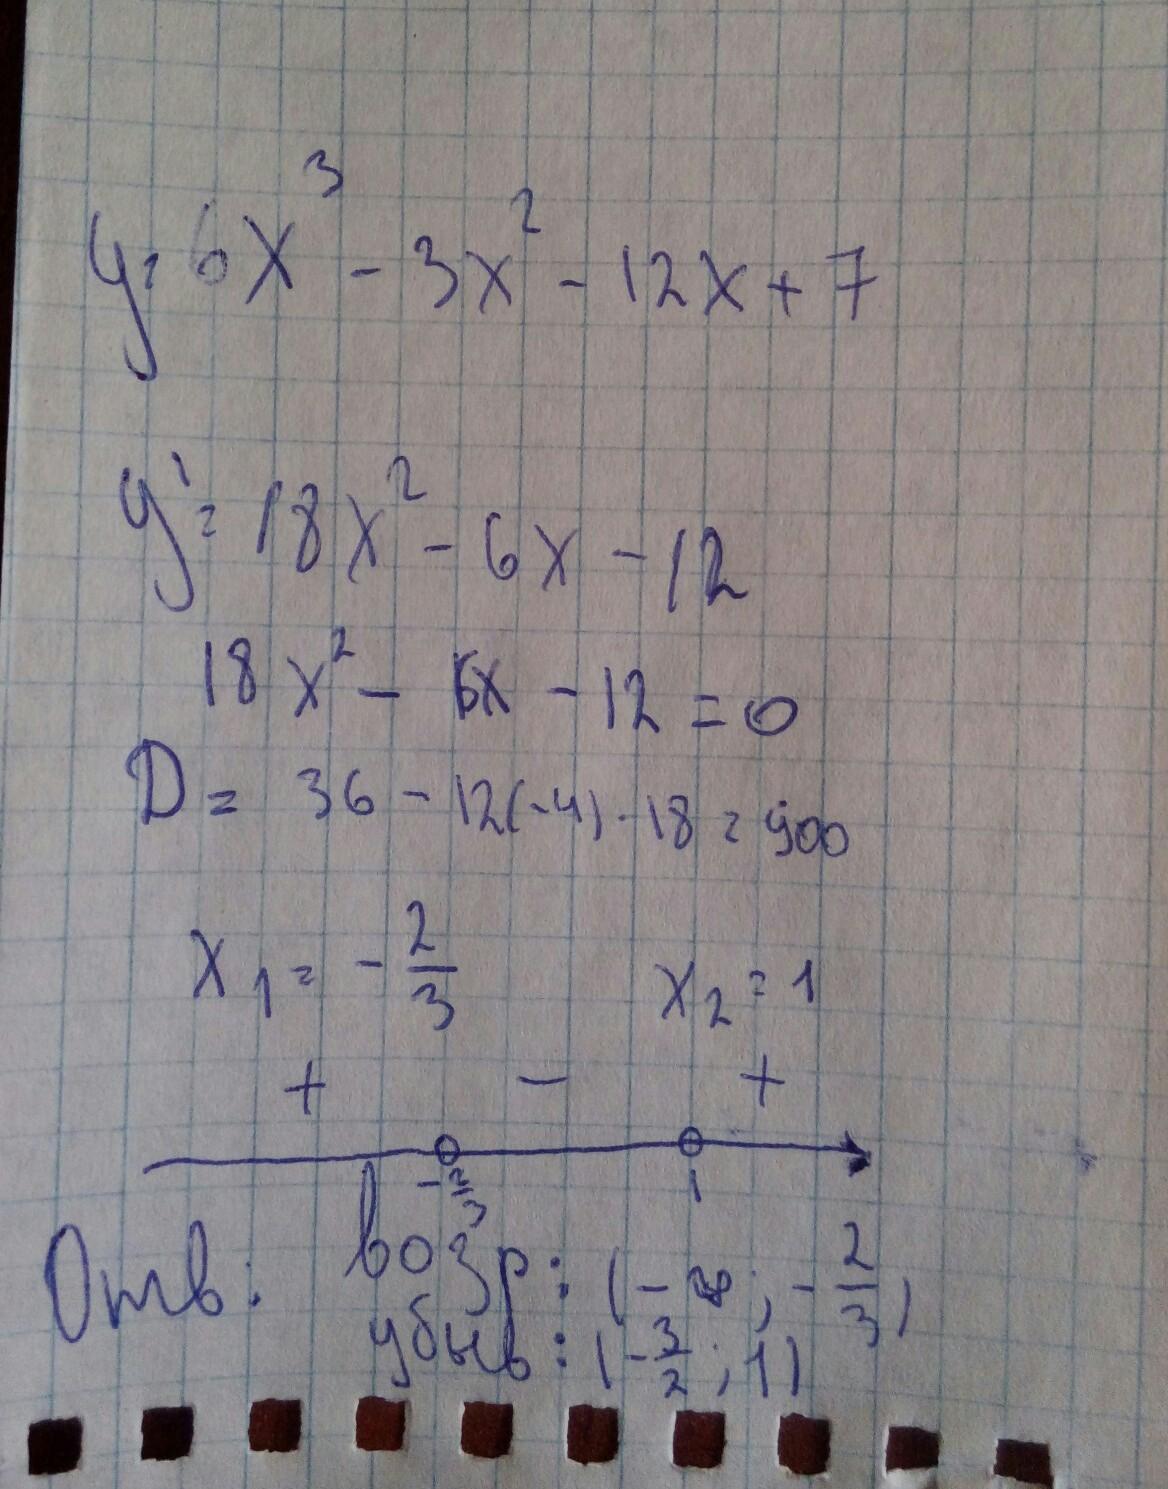 y = 6x³ - 3x² - 12x + 7
y' = 18x² - 6x - 12
18x² - 6x - 12 = 0
D = 36 - 12(-4) · 18 = 900
x₁ = -2/3 x₂ = 1
+ - +
-2/3 1
Отв: возр: (-∞; -2/3)
убыв: (-3/2; 1)